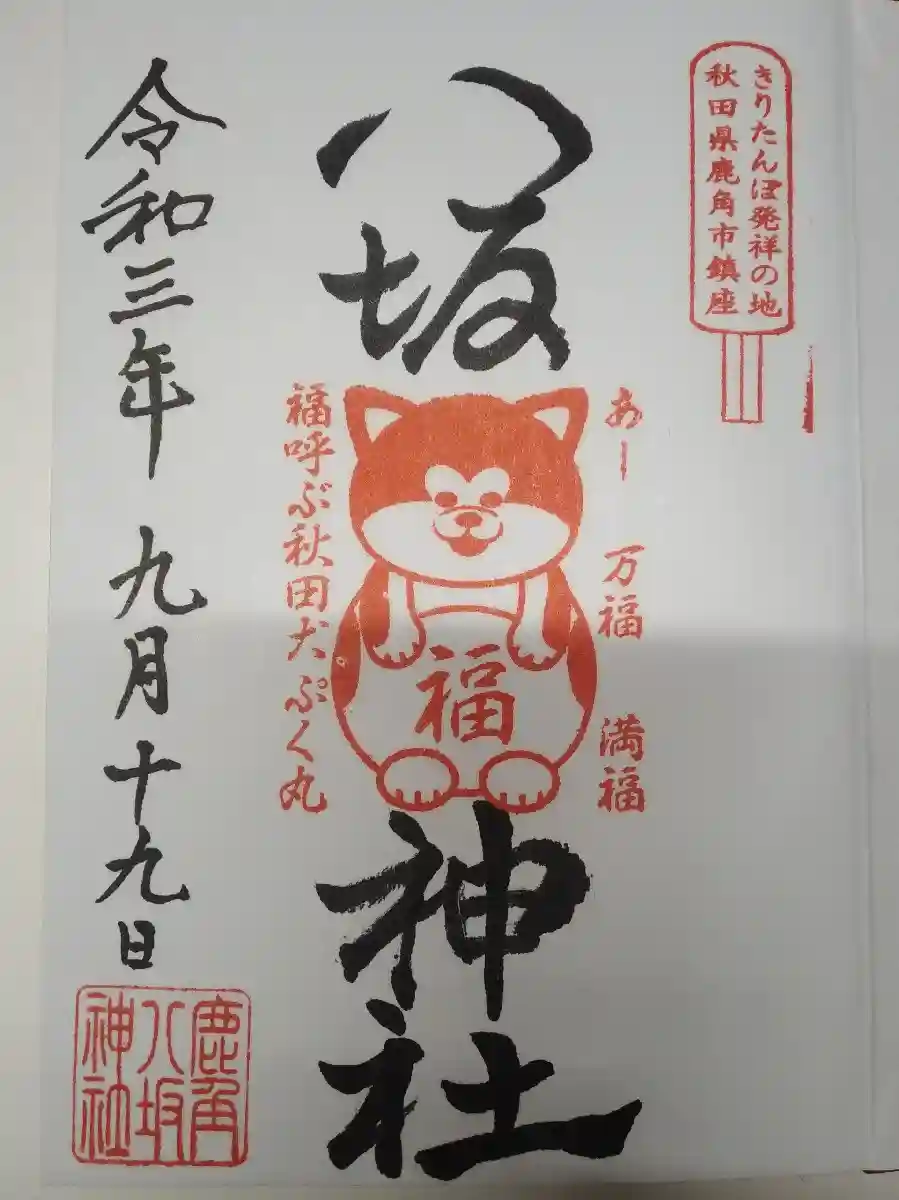 きりたんぽ発祥の地
秋田県鹿角市鎮座
あー 万福 満福
八坂神社
福
福呼ぶ秋田犬ぷく丸
令和三年 九月十九日
鹿角
八坂
神社